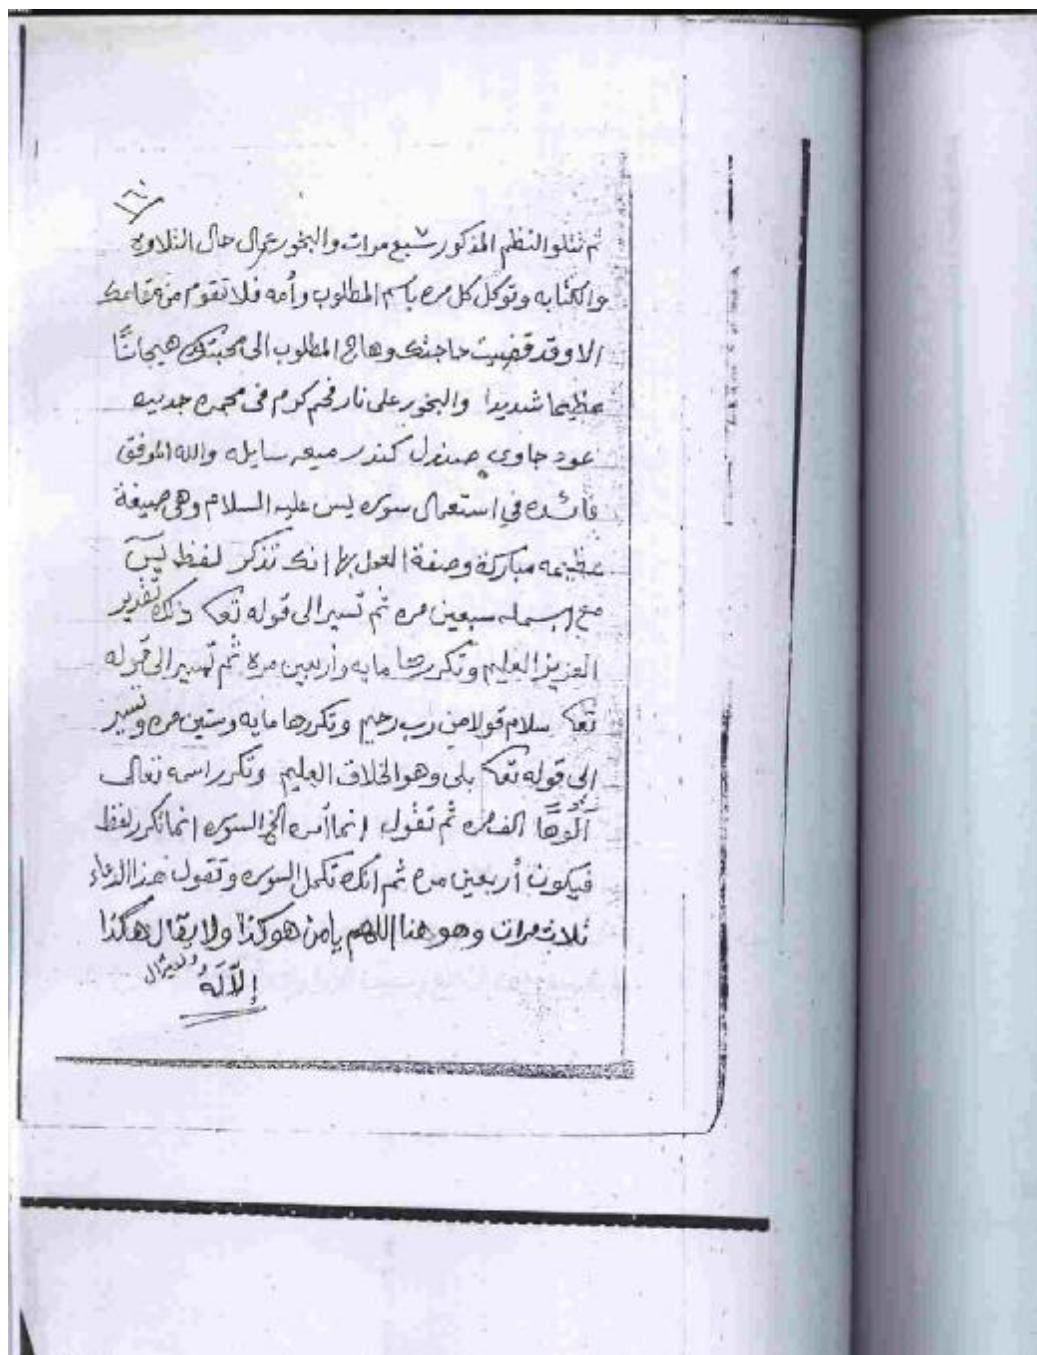 ١٦٠
ثم تتلو النظم المذكور سبع مرات والبخور عمال حال التلاوه
والكتابه وتوكل كل مره باسم المطلوب وأمه فلا تقوم من مقامك
الا وقد قضيت حاجتك وهاج المطلوب الى محبتك هيجانًا
عظيما شديدا والبخور على نار فحم كرم فى مجمره جديده
عود جاوى صندل كندر ميعه سايله والله الموفق
فائده في استعمال سوره يس عليه السلام وهى صيغة
عظيمه مباركة وصفة العمل بها انك تذكر لفظ يس
مع البسمله سبعين مره ثم تسير الى قوله تعا ذلك تقدير
العزيز العليم وتكررها مايه وأربعين مرة ثم تسير الى قوله
تعا سلام قولا من رب رحيم وتكررها مايه وستين مره وتسير
الى قوله تعا بلى وهو الخلاق العليم وتكرر اسمه تعالى
الف مره ثم تقول انما أمره الخ السوره انما تكرر لفظ
فيكون أربعين مره ثم انك تكمل السوره وتقول هذا الدعاء
ثلاث مرات وهو هذا اللهم يا من هو كذا ولا يقال هكذا